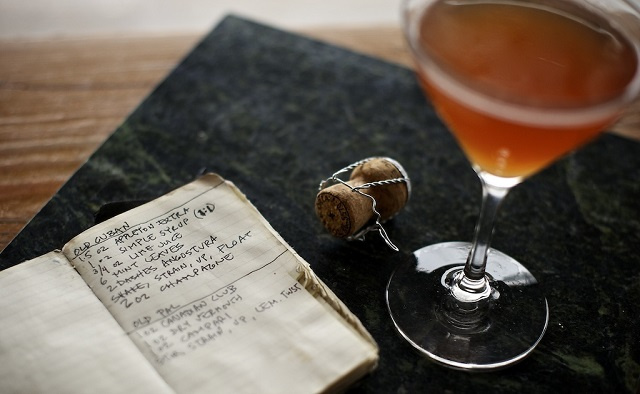 OLD CUBAN
1.5 OZ APPLETON EXTRA
1 OZ SIMPLE SYRUP (1:1)
3/4 OZ LIME JUICE
6 MINT LEAVES
2 DASHES ANGOSTURA
SHAKE, STRAIN, UP, FLOAT
2 OZ CHAMPAGNE
OLD PAL
OZ CANADIAN CLUB
OZ DRY VERMOUTH
OZ CAMPARI
STRAIN, UP, LEM. TWIST